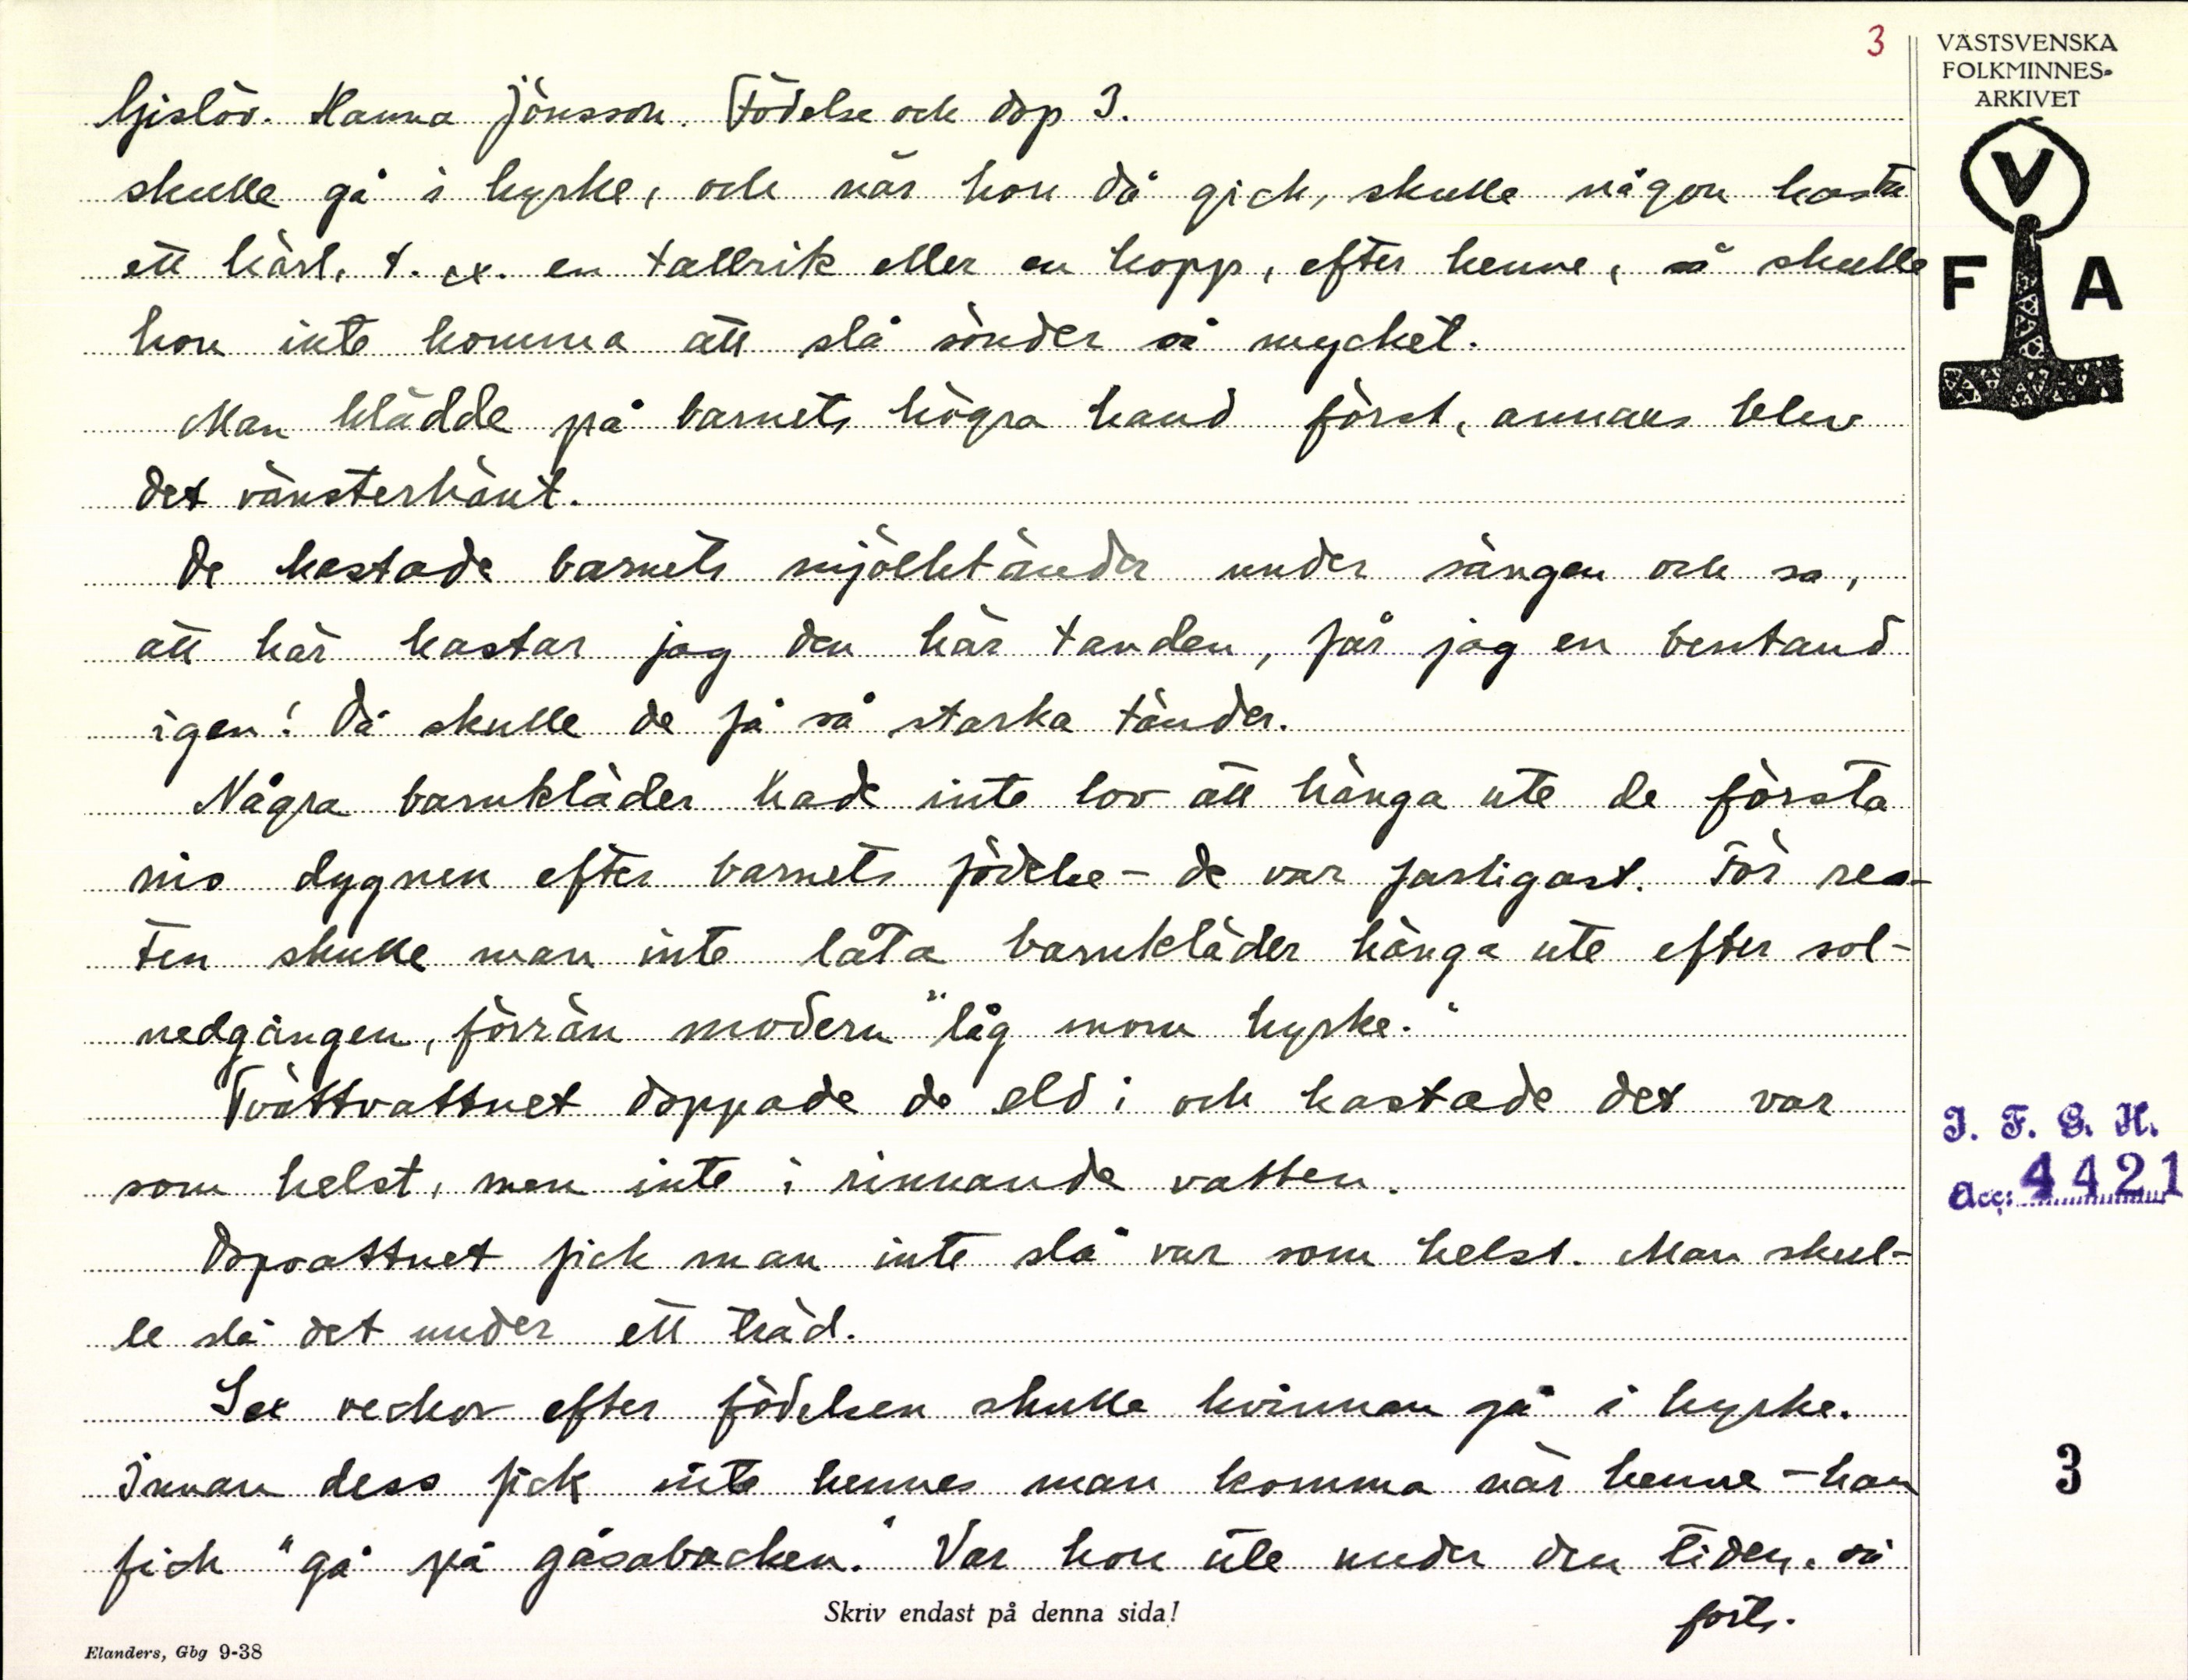 3
VÄSTSVENSKA
FOLKMINNES-
ARKIVET
V
F A
Gislöv. Hanna Jönsson. Födelse och dop 3.
skulle gå i kyrke, och när hon då gick, skulle någon kasta
ett kärl, t. ex. en tallrik eller en kopp, efter henne, så skulle
hon inte komma att slå sönder så mycket.
Man klädde på barnets högra hand först, annars blev
det vänsterhänt.
De kastade barnets mjölktänder under sängen och sa,
att här kastar jag den här tanden, får jag en bentand
igen! Då skulle de få så starka tänder.
Några barnkläder hade inte lov att hänga ute de första
nio dygnen efter barnets födelse - de var farligast. För res-
ten skulle man inte låta barnkläder hänga ute efter sol-
nedgången, förrän modern "låg inom kyrke."
Tvättvattnet doppade de eld i och kastade det var
som helst, men inte i rinnande vatten.
Dopvattnet fick man inte slå var som helst. Man skul-
le slå det under ett träd.
Sex veckor efter födelsen skulle kvinnan gå i kyrke.
Innan dess fick inte hennes man komma när henne - han
fick "gå på gåsabacken." Var hon ute under den tiden, så
forts.
J. F. G. H.
Acc: 4421
3
Skriv endast på denna sida!
Elanders, Gbg 9-38